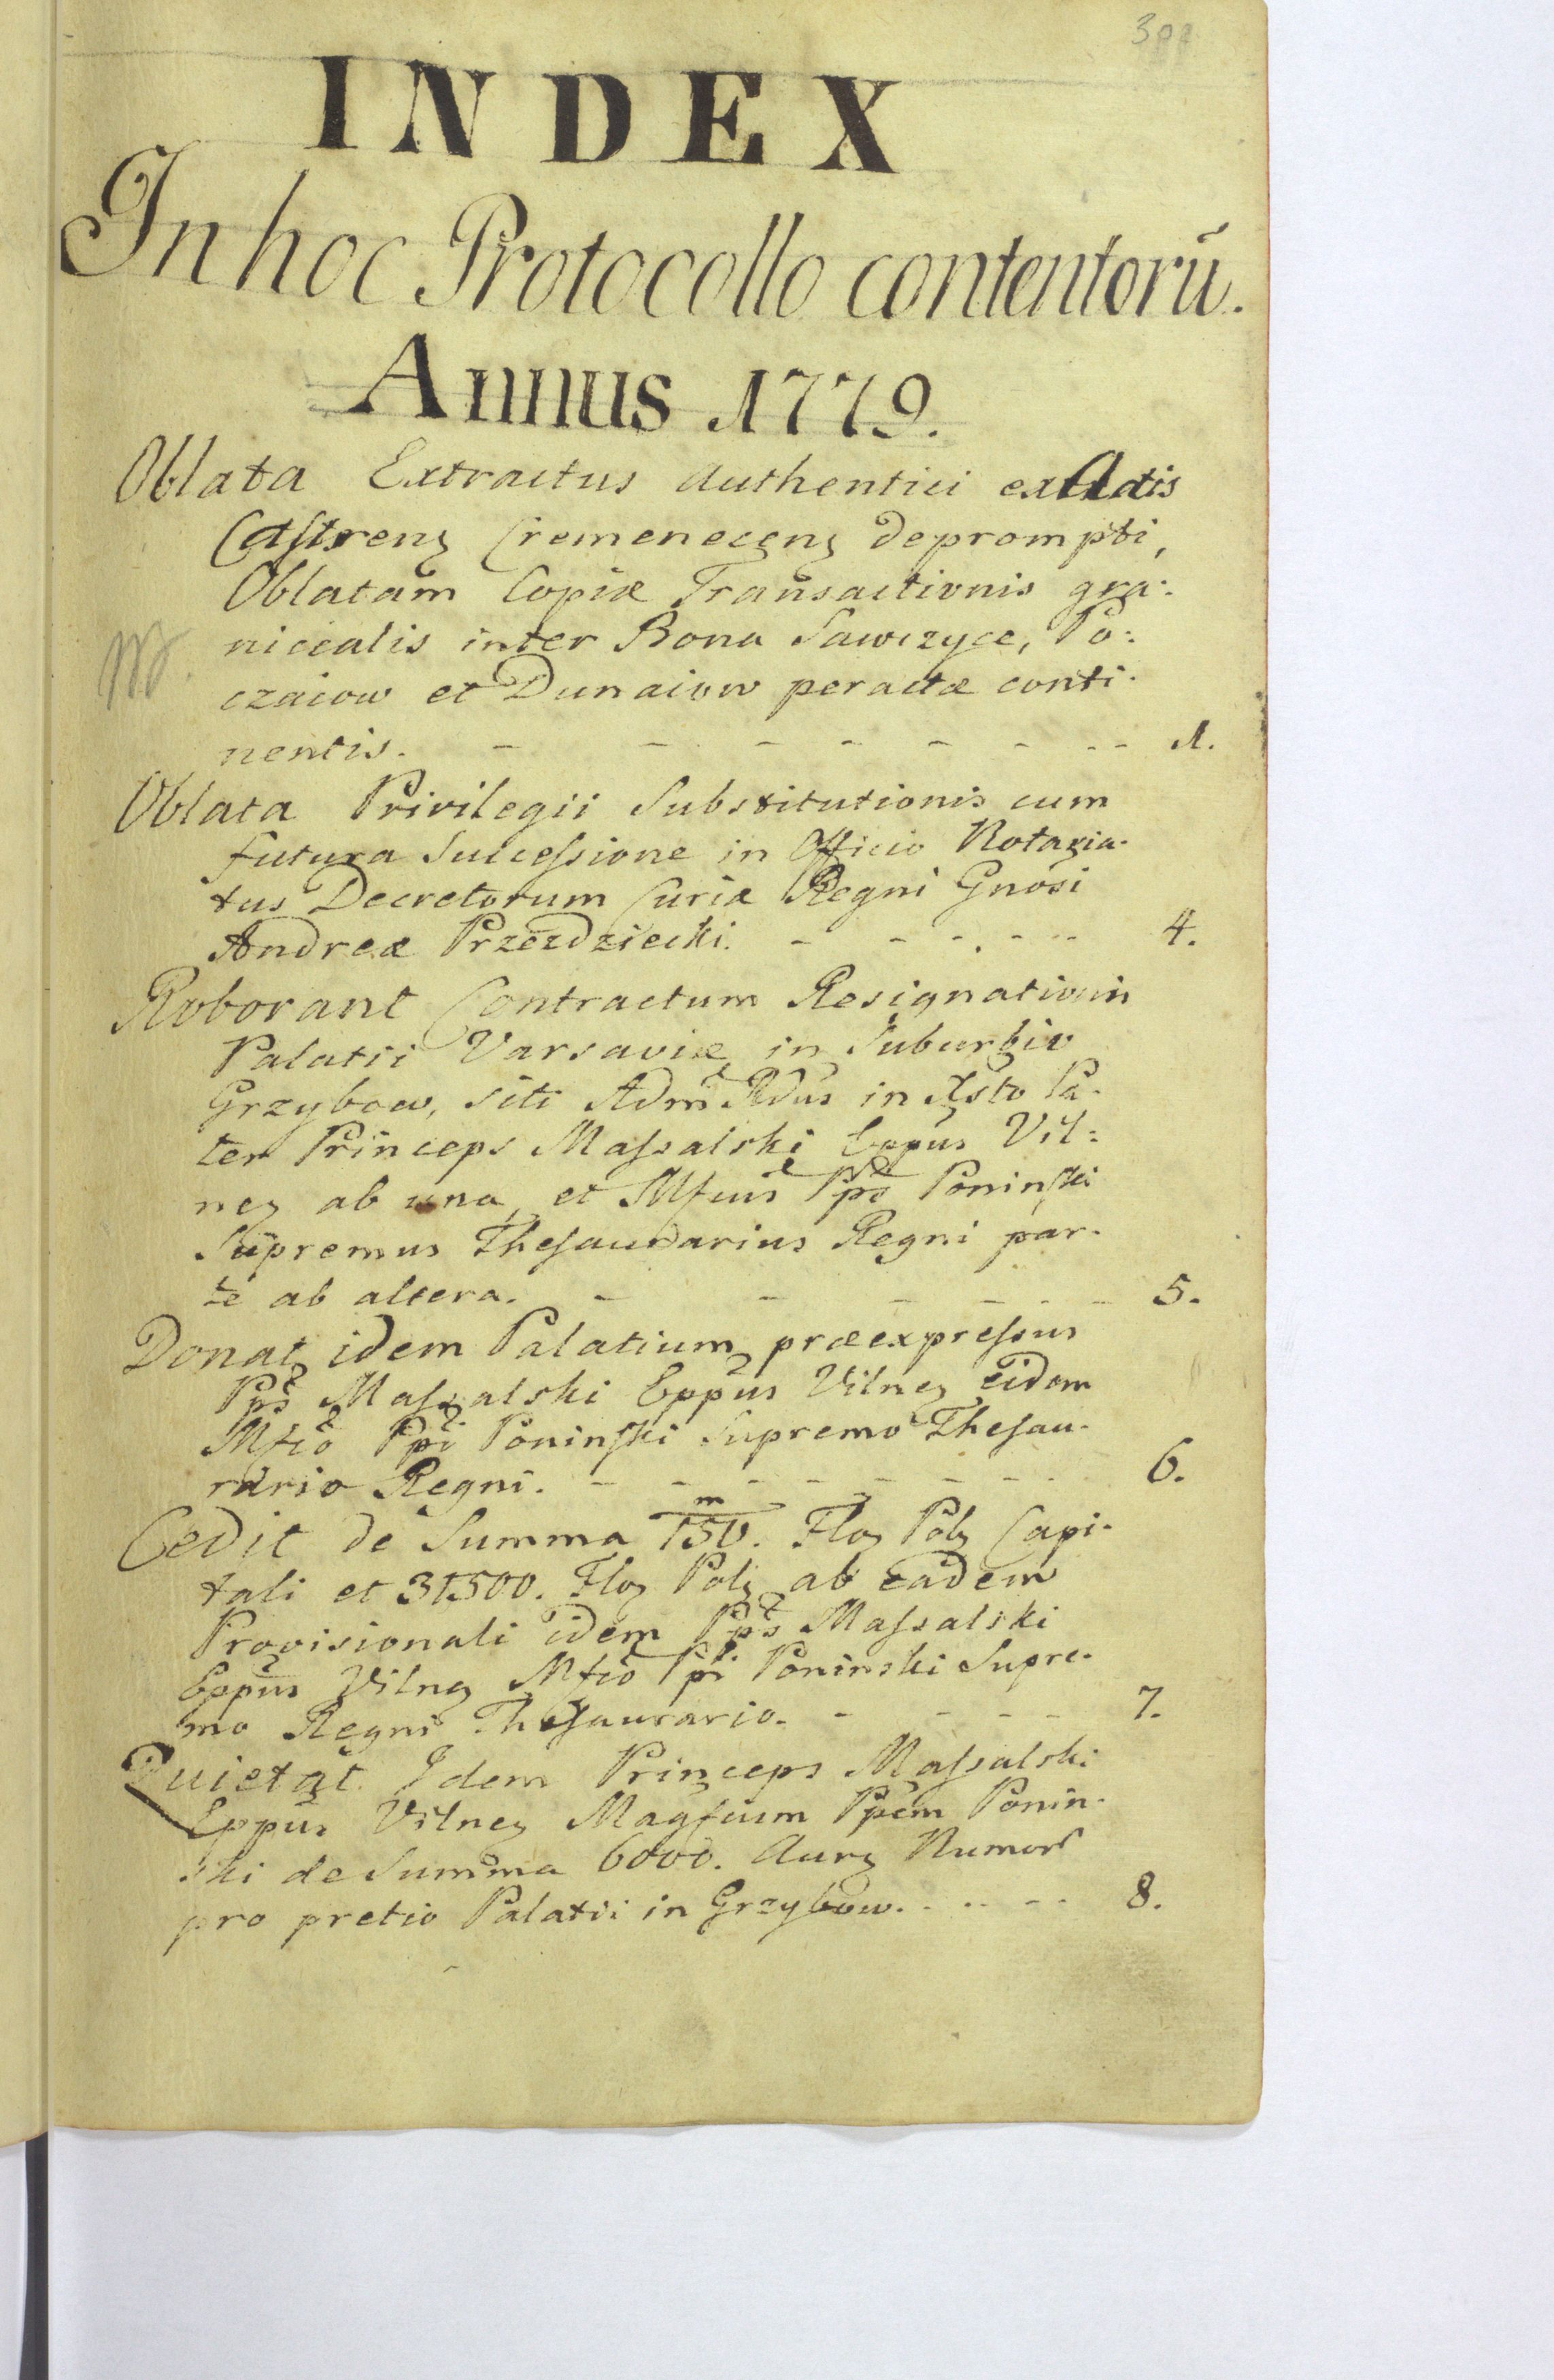 INDEX
In hoc Protocollo contentorū.
Annus 1779.
Oblata Extractus authentici ex Actis
Castrenȝ Cremenecenȝ deprompti,
Oblatam Copiæ Transactionis gra:
niciealis inter Bona Sawczyce, Po:
czaiow et Dunaiow peractæ conti-
nentis. - - - - - - - - 1.
Oblata Privilegii Substitutionis cum
futura Successione in Officio Notaria-
tus Decretorum Curiæ Regni Gnosi
Andreæ Przezdziecki. - - - - - - 4.
Roborant Contractum Resignationis
Palatii Varsaviæ in Suburbio
Grzybow, siti Adm Rdus in Xsto Pa-
ter Princeps Massalski Eppus Vil:
neȝ ab una, et Mfcus Pps Poninski
Supremus Thesaurarius Regni par-
te ab altera. - - - - - - 5.
Donat idem Palatium præexpressus
Pps Massalski Eppus Vilneȝ eidem
Mfco Ppi Poninski Supremo Thesau-
rario Regni. - - - - - - - - 6.
Cedit de Summa 150.m Floȝ Polȝ Capi-
tali et 31500. Floȝ Polȝ ab eadem
Provisionali idem Pps Massalski
Eppus Vilneȝ Mfco Ppi Poninski Supre-
mo Regni Thesaurario. - - - - - 7.
Quietat Idem Princeps Massalski
Eppus Vilneȝ Magfcum Ppem Ponin-
ski de Summa 6000. Aurȝ Numor
pro pretio Palatii in Grzybow. - - - - - 8.